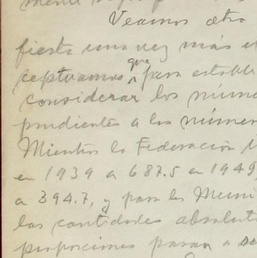 Veamos otro
fiesta una vez más e
ceptuamos que para estable
considerar los núme
prudientes a los númer
Mientras la Federación
en 1939 a 687.5 en 1949
a 394.7, y para los Muni
las cantidades absolut
proporciones pasan a